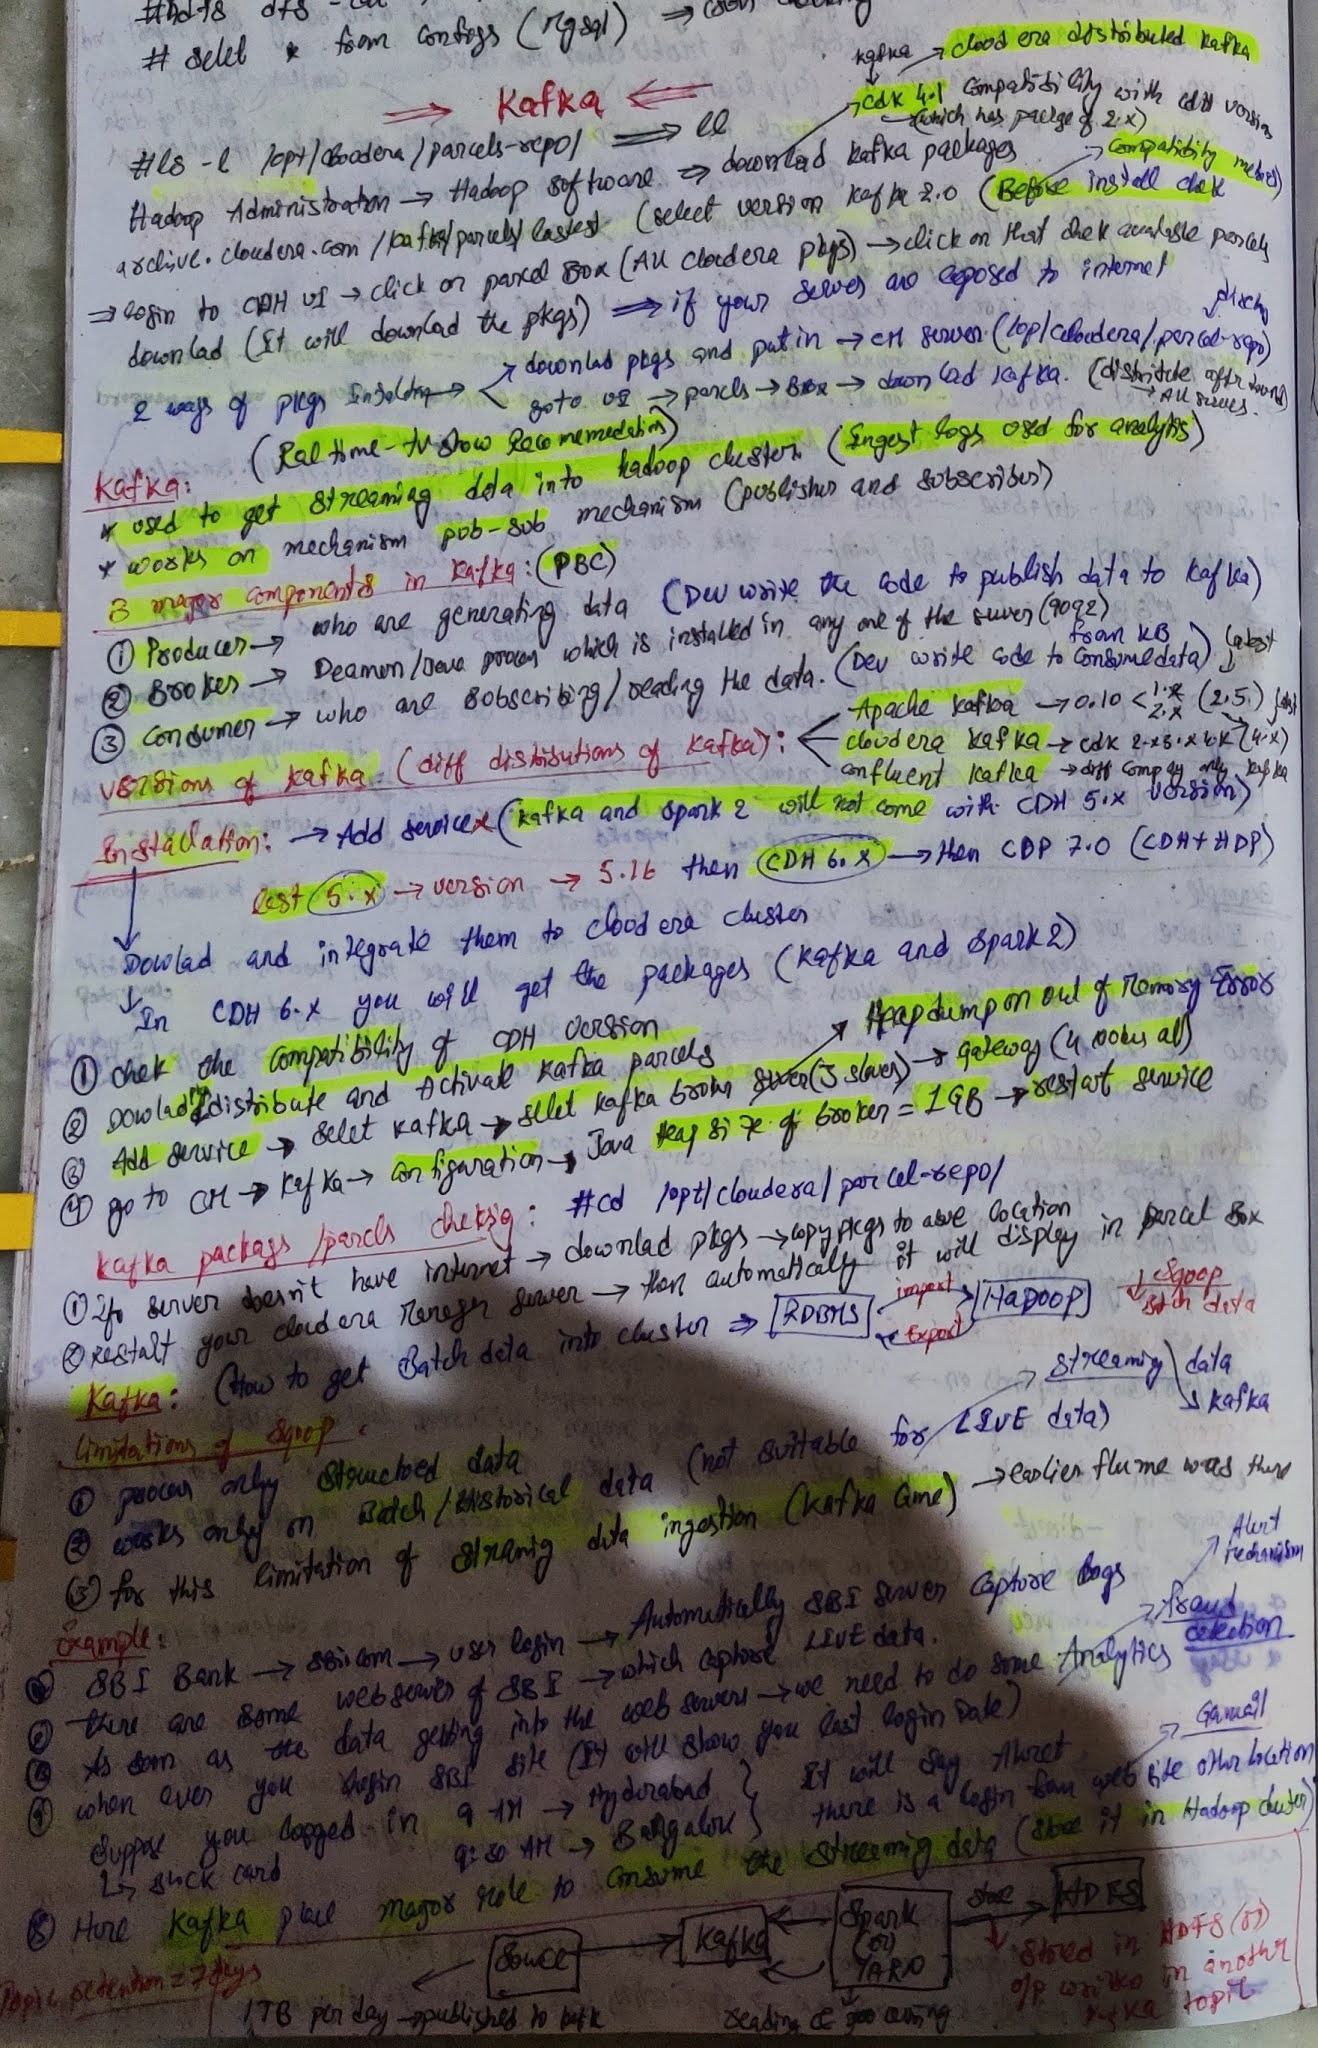 # selet * from configs (mysql)
kafka → cloodera distributed kafka
⇒ Kafka ⇐
cdk 4.1 compatibility with cdh version
(which has packge of 2.x)
#ls -l /opt/cloodera/parcels-repo/ ⇒ ll
Hadoop Administration → Hadoop software ⇒ download kafka packages
→ compatibility
archive.cloudera.com/kafka/parcels/lastest (select version kafka 2.0 (Before install chek
⇒ login to CDH UI → click on parcel Box (All cloudera pkgs) → click on that chek available parcels
downlad (It will downlad the pkgs) ⇒ if your server are exposed to internet
2 ways of pkgs → downlad pkgs and put in → CM server (/opt/cloudera/parcel-repo)
goto UI → parcels → Box → downlad kafka. (distribute
All servers.
(Real time - tv show
Kafka:
* used to get streaming data into hadoop cluster. (Ingest logs used for analytis)
* works on mechanism pub-sub mechanism (publisher and subscriber)
3 major components in kafka: (PBC)
① Producer → who are generating data (Dev write the code to publish data to kafka)
② Broker → Deamon/Java process which is installed in any one of the server (9092)
from KB
③ Consumer → who are subscribing/reading the data. (Dev write code to consume data)
versions of kafka. (diff distributions of kafka):
Apache kafka → 0.10 < 1.x 2.x (2.5)
cloudera kafka → cdk 2.x 3.x 4.x (4.x)
confluent kafka → diff company only kafka
Installation: → Add service x (kafka and spark 2 will not come with CDH 5.x version)
last 5.x → version → 5.16 then CDH 6.x → then CDP 7.0 (CDH + HDP)
Dowlad and integrate them to cloodera cluster
In CDH 6.x you will get the packages (kafka and spark2)
Heapdump on out of memory Error
① chek the compatibility of CDH version
② Dowlad, distribute and Activate kafka parcels
③ Add service → selet kafka → selet kafka broker server (3 slaves) → gateway (4 nodes all)
④ go to CM → kafka → configuration → Java Heap size of broker = 1GB → restart service
kafka packags/parcels cheking: #cd /opt/cloudera/parcel-repo/
① If server doesn't have internet → downlad pkgs → copy pkgs to above location
② restalt your cloudera Manager server → then automatically it will display in parcel Box
Kafka: (How to get Batch data into cluster ⇒ RDBMS import Export HADOOP ↓ Sqoop
Btch data
streaming data
↓ kafka
limitations of Sqoop:
① process only structured data
② works only on Batch/Historical data (not suitable for LIVE data)
③ for this limitation of streamig data ingestion (kafka came) → earlier flume was there
Example:
Alert mechanism
① SBI Bank → sbi.com → user login → Automatically SBI server capture logs
② there are some webserver of SBI → which capture LIVE data.
③ As soon as the data getting into the web servers → we need to do some Analytics → fraud detection
④ when ever you login SBI site (It will show you last login Date)
suppose you logged in 9 AM → Hyderabad
9:30 AM → Banglore
It will say Aleret
there is a login from web site other location
→ Gamail
card
⑤ Here kafka place major role to consume the streamig data (store it in Hadoop cluster)
Source → Kafka ← Spark (or) YARN store → HDFS
retention = 7 days
1TB per day → published to
reading
stored in HDFS (or)
o/p in another
kafka topic